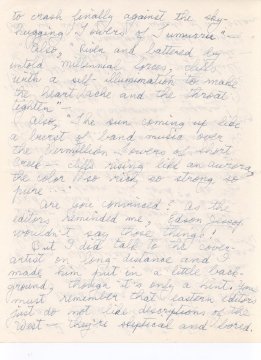 to crash finally against the sky-
hugging Towers of Tumurru"—
Also, "Riven and battered by
untold millennial forces, cliffs
with a self-illumination to make
the heart ache and the throat
tighten"
Also, "The sun coming up like
a burst of band music over
the Vermillion Towers of Short
Creek — cliffs rising like an aurora,
the color so rich so strong so
pure"
Are you convinced? as the
editors reminded me, Edson
wouldn't say those things!
But I did talk to the cover
artist on long-distance and I
made him put in a little back-
ground, though it's only a hint. You
must remember that eastern editors
just do not like descriptions of the
West — they're skeptical and bored.